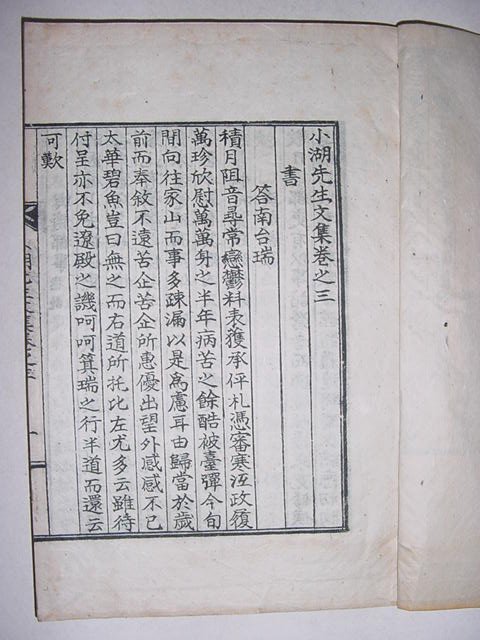 小湖先生文集卷之三
書
答南台瑞
積月阻音尋常戀鬱料表獲承伻札憑審寒沍政履
萬珍欣慰萬萬身之半年病苦之餘酷被臺彈今旬
間向往家山而事多疎漏以是爲慮耳由歸當於歲
前而奉敘不遠苦企苦企所惠優出望外感感不已
太華碧魚豈曰無之而右道所托比左尤多云雖待
付呈亦不免遼殿之譏呵呵箕瑞之行半道而還云
可歎